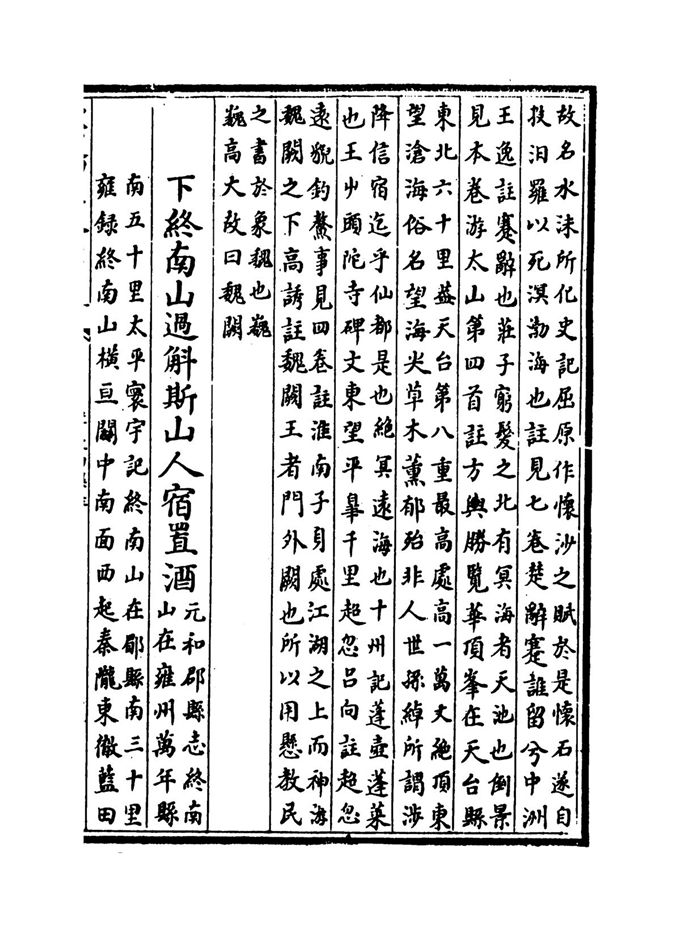 故名水沫所化史記屈原作懷沙之賦於是懷石遂自
投汨羅以死溟渤海也註見七卷楚辭蹇誰留兮中洲
王逸註蹇辭也莊子窮髮之北有冥海者天池也倒景
見本卷游太山第四首註方輿勝覽華頂峯在天台縣
東北六十里葢天台第八重最高處高一萬丈絶頂東
望滄海俗名望海尖草木薰郁殆非人世孫綽所謂涉
降信宿迄乎仙都是也絶冥遠海也十州記蓬壺蓬萊
也王屮頭陀寺碑文東望平臯千里超忽吕向註超忽
遠貌釣鰲事見四卷註淮南子身處江湖之上而神游
魏闕之下高誘註魏闕王者門外闕也所以用懸教民
之書於象魏也巍
巍高大故曰魏闕
下終南山過斛斯山人宿置酒
元和郡縣志終南
山在雍州萬年縣
南五十里太平寰宇記終南山在鄠縣南三十里
雍録終南山横亘關中南面西起秦隴東徹藍田